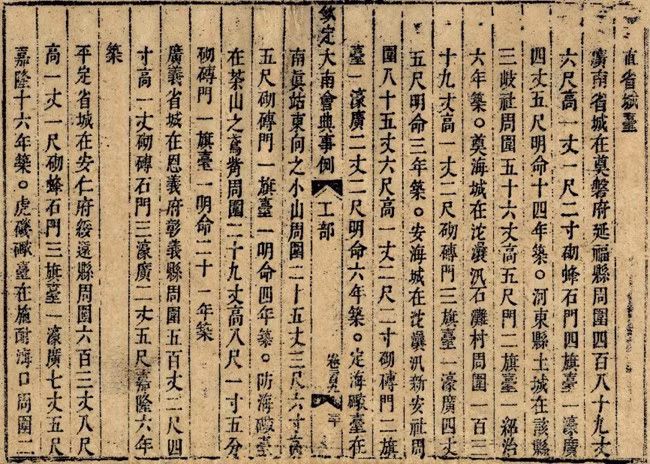 直省城臺
廣南省城在奠磐府延福縣周圍四百八十九丈
六尺高一丈一尺二寸砌蜂石門四旗臺一濠廣
四丈五尺明命十四年築。河東縣土城在該縣
三歧社周圍五十六丈高五尺門二旗臺一紹治
六年築。奠海城在沱㶞汛石灘村周圍一百三
十九丈高一丈二尺砌磚門三旗臺一濠廣四丈
五尺明命三年築。安海城在沱㶞汛新安社周
圍八十五丈六尺高一丈二尺二寸砌磚門二旗
臺一濠廣二丈二尺明命六年築。定海礮臺在
欽定大南會典事例 工部
南眞站東向之小山周圍二十五丈三尺六寸高
五尺砌磚門一旗臺一明命四年築。防海礮臺
在茶山之嘴周圍二十九丈高八尺一寸五分
砌磚門一旗臺一明命二十一年築
廣義省城在思義府彰義縣周圍五百丈二尺四
寸高一丈砌磚石門三濠廣二丈五尺嘉隆六年
築
平定省城在安仁府綏遠縣周圍六百三丈八尺
高一丈一尺砌蜂石門三旗臺一濠廣七丈五尺
嘉隆十六年築。虎磯礮臺在施耐海口周圍二